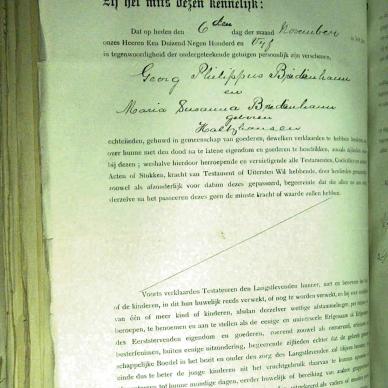 Zij het mits dezen kennelijk:
Dat op heden den 6den dag der maand November
onzes Heeren Een Duizend Negen Honderd en Vyf
in tegenwoordigheid der ondergeteekende getuigen persoonlijk zijn verschenen,
Georg Philippus Bredenhann
en
Maria Susanna Bredenhann
geboren
Holtzhausen
echtelieden, gehuwd in gemeenschap van goederen, dewelken verklaarden te hebben
over hunne met den dood na te latene eigendom en goederen te beschikken, zooals zijlieden
bij dezen ; weshalve hierdoor herroepende en vernietigende alle Testamenten, Codicillen
Acten of Stukken, kracht van Testament of Uitersten Wil hebbende, door
zoowel als afzonderlijk voor datum dezes gepasseerd, begeerende dat die allen
derzelve na het passeeren dezes geen de minste kracht of waarde zullen hebben.
Voorts verklaarden Testateuren den Langstlevenden hunner, met en benevens
of de kinderen, in dit hun huwelijk reeds verwekt, of nog te worden verwekt, en bij
van één of meer kind of kinderen, alsdan derzelver wettige afstammelingen, per
beroepen, te benoemen en aan te stellen als de eenige en universeele Erfgenaam of
des Eerststervenden eigendom en goederen, roerend zoowel als onroerend,
besterfenissen, buiten eenige uitzondering, begeerende zijlieden echter dat de geheele
schappelijke Boedel in het bezit en onder den zorg des Langstlevenden zal
einde dus te beter de jonge kinderen uit het vruchtgebruik daarvan te kunnen
tot hunne mondige dagen, verder huwelijk of bereiking van andere